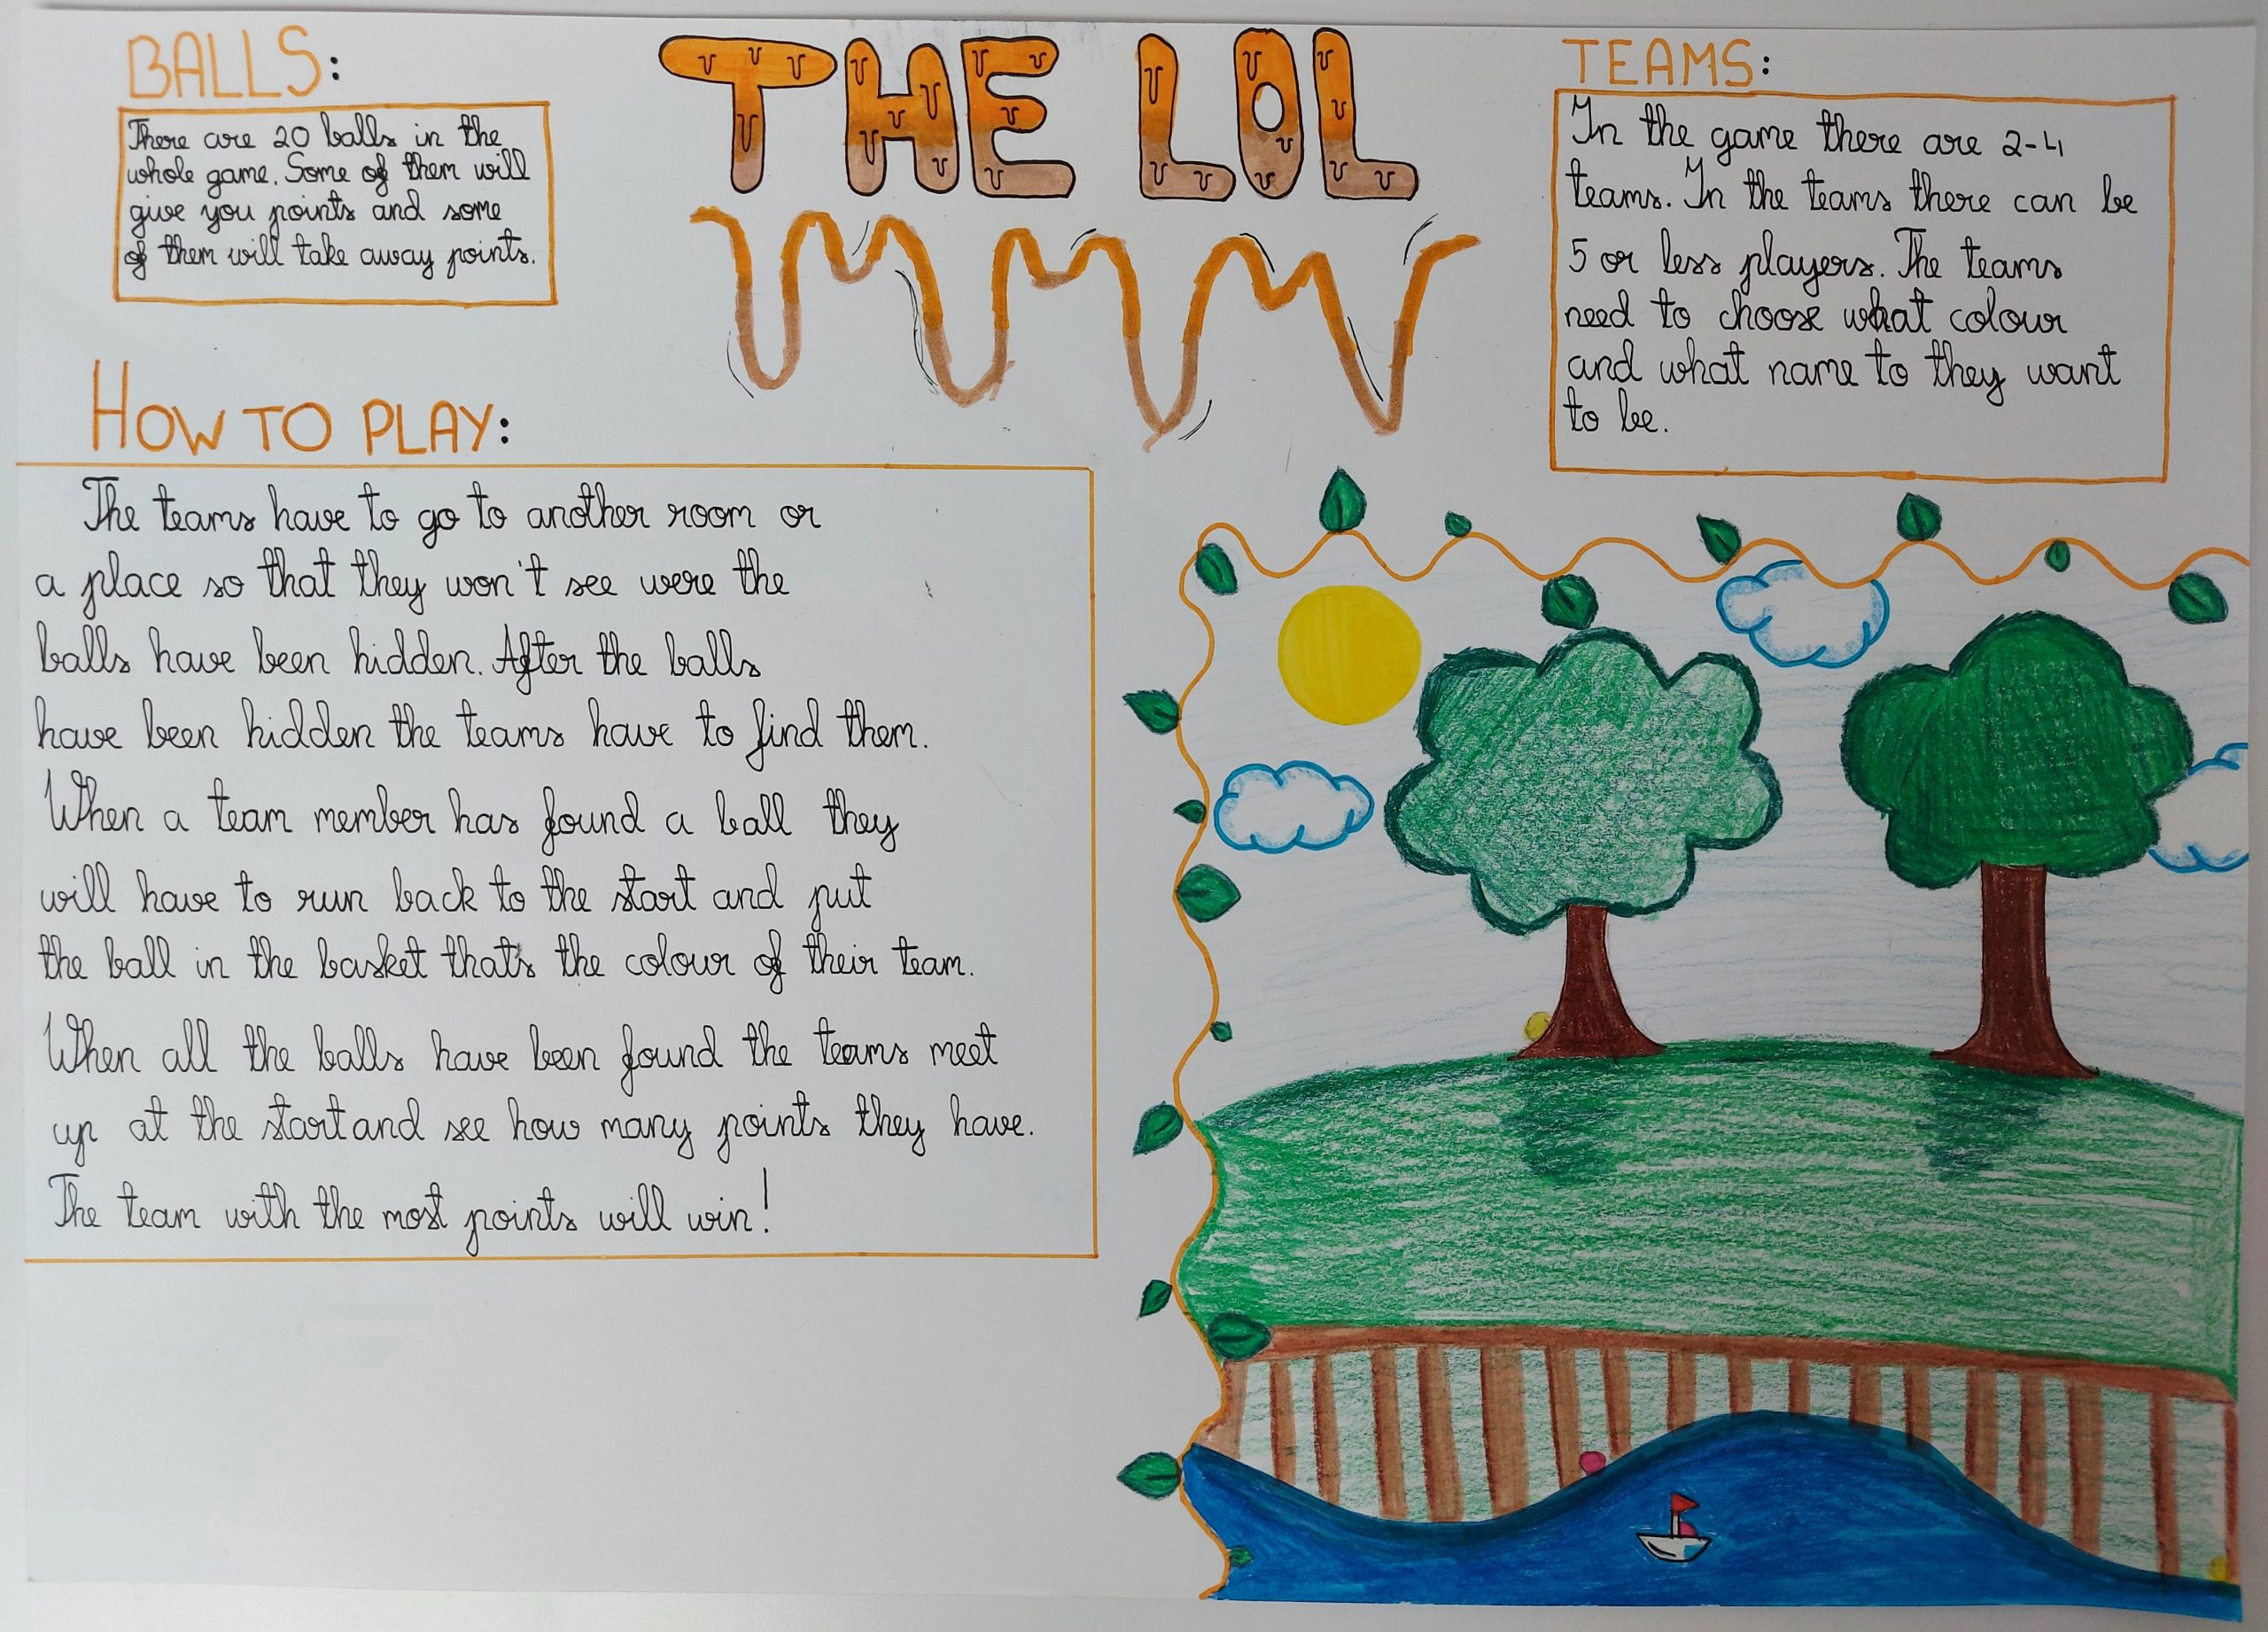 THE LOL
BALLS:
There are 20 balls in the
whole game. Some of them will
give you points and some
of them will take away points.
TEAMS:
In the game there are 2-4
teams. In the teams there can be
5 or less players. The teams
need to choose what colour
and what name to they want
to be.
HOW TO PLAY:
The teams have to go to another room or
a place so that they won't see were the
balls have been hidden. After the balls
have been hidden the teams have to find them.
When a team member has found a ball they
will have to run back to the start and put
the ball in the basket that's the colour of their team.
When all the balls have been found the teams meet
up at the start and see how many points they have.
The team with the most points will win!